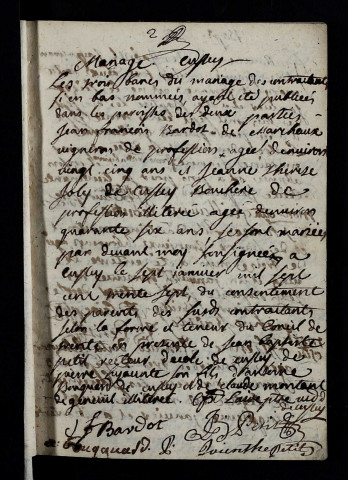 2
Mariage Cussey
Les trois bancs du mariage des contractants
si en bas nommés ayant été publiées
dans les paroisses des deux parties
Jean François Bardot de Marchaux
vigneron de profession agée denviron
vingt cinq ans et Jeanne Therese
Joly de Cussey Bouchere de
profession illiteree agée denviron
quarante six ans se sont mariées
par devant moy soussignée a
Cussey le sept janvier mil sept
cent trente sept du consentement
des parents des susd contractants
selon la forme et teneur du Concil de
trente en presence de Jean Baptiste
petit recteur decole de Cussey de
pierre son fils d'antoine
de Cussey et de Claude montant
de geneuil illitéret
de Cussey
J f Bardot J B Petit
P. petit